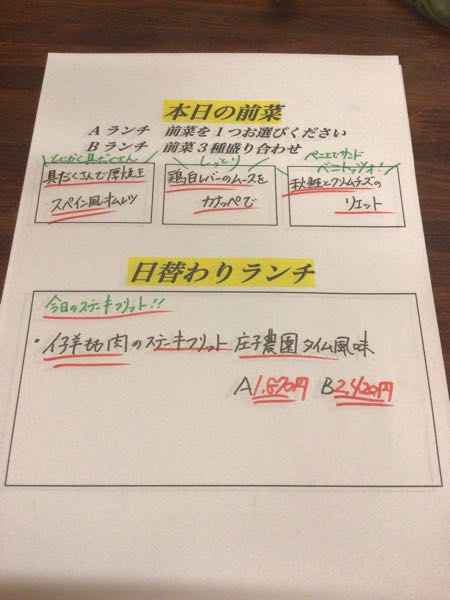 本日の前菜
Aランチ 前菜を1つお選びください
Bランチ 前菜3種盛り合わせ
とにかく具だくさん
具だくさんで厚焼玉
スペイン風オムレツ
しっとり
鶏白レバーのムースを
カナッペで
ベニエでサンド
ベニトッツォ!
秋鮭とクリームチーズの
リエット
日替わりランチ
今日のステーキフリット!!
・仔羊もも肉のステーキフリット 庄子農園タイム風味
A1,870円 B2,420円